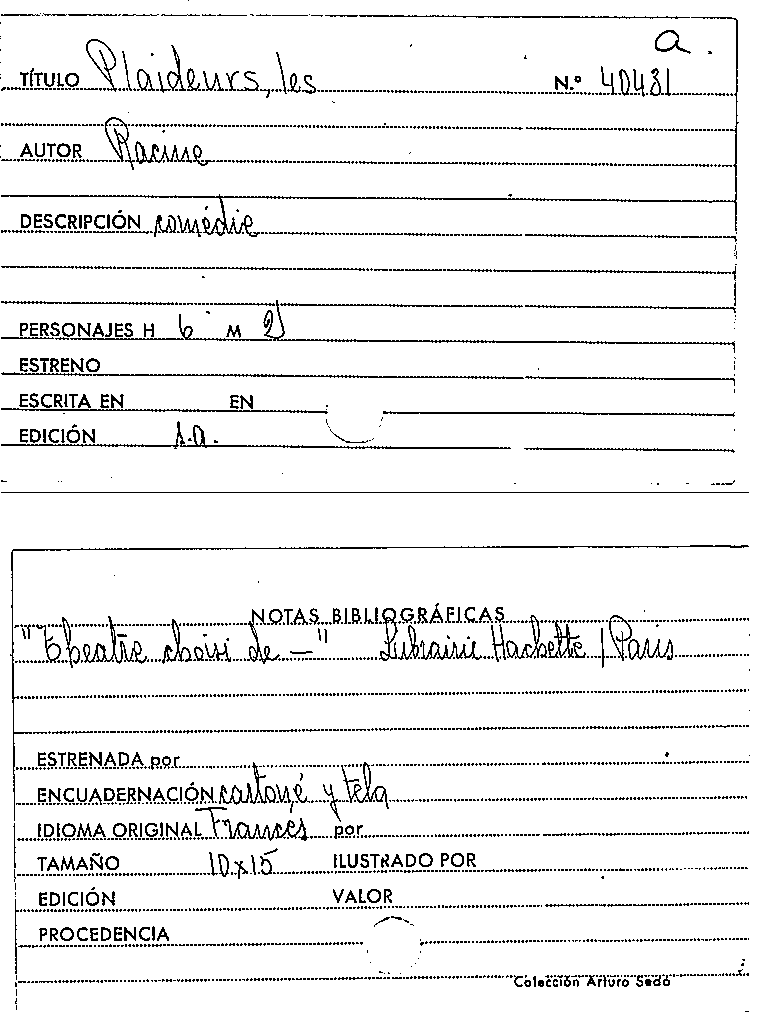 a.
TÍTULO Plaideurs, les N.º 40431
AUTOR Racine
DESCRIPCIÓN comédie
PERSONAJES H 6 M 2
ESTRENO
ESCRITA EN EN
EDICIÓN s.a.
NOTAS BIBLIOGRÁFICAS
"Theatre choisi de —" Librairie Hachette / Paris
ESTRENADA por
ENCUADERNACIÓN cartoné y tela
IDIOMA ORIGINAL Frances por
TAMAÑO 10x15 ILUSTRADO POR
EDICIÓN VALOR
PROCEDENCIA
Colección Arturo Sedó